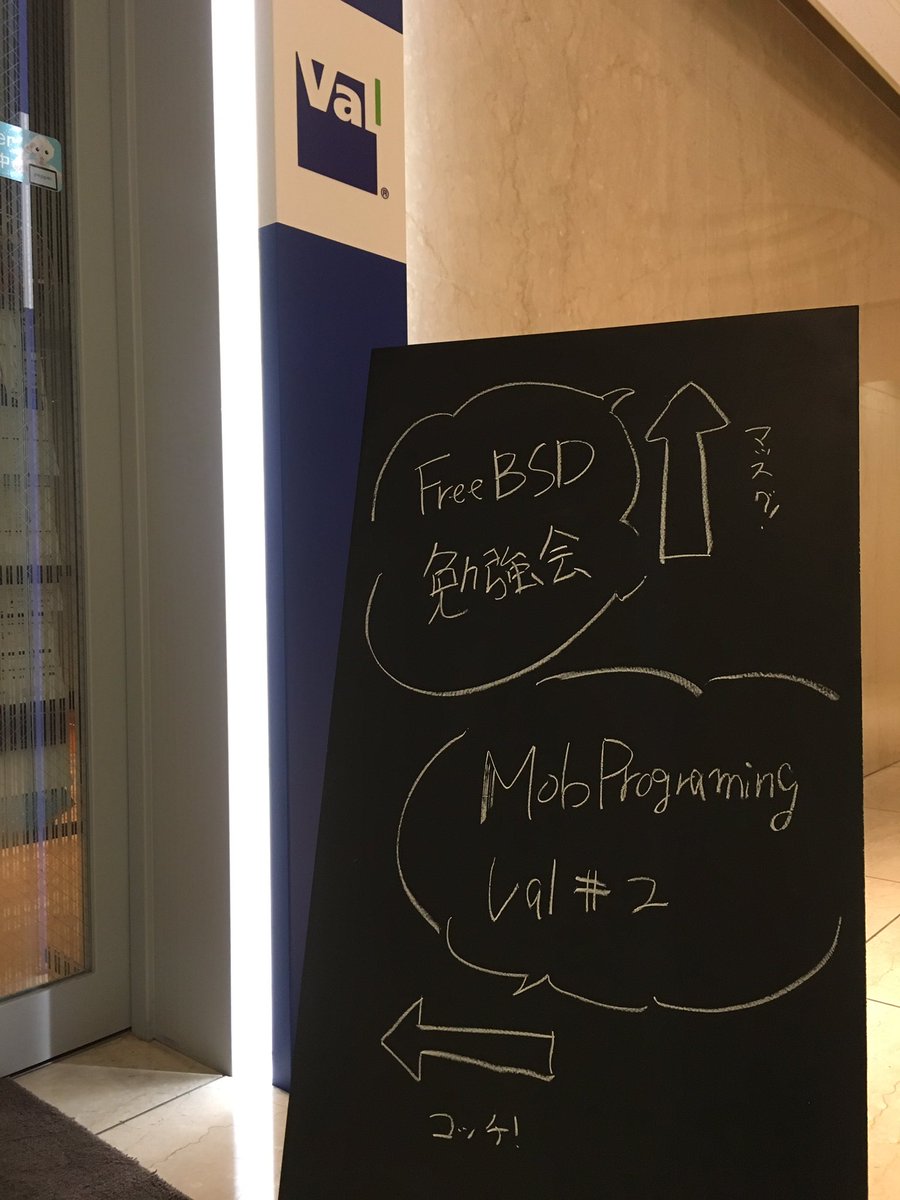 Val
®
FreeBSD
勉強会
マッスグ!
MobPrograming
Val #2
コッチ!